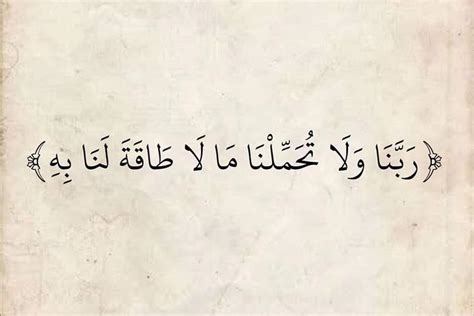 ﴿رَبَّنَا وَلَا تُحَمِّلْنَا مَا لَا طَاقَةَ لَنَا بِهِ﴾